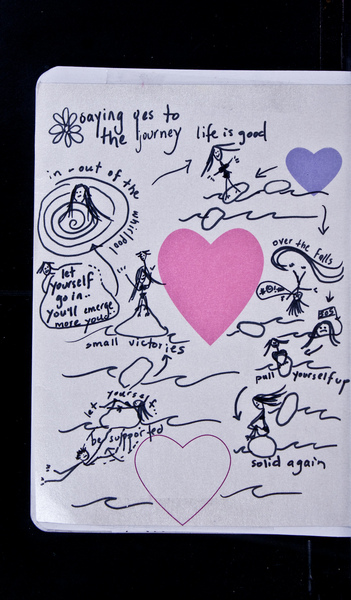 saying yes to
the journey
life is good
in - out of the whirlpool
over the falls
let
yourself
go in..
you'll emerge
more you
SOS
small victories
pull yourself up
let yourself
be supported
solid again